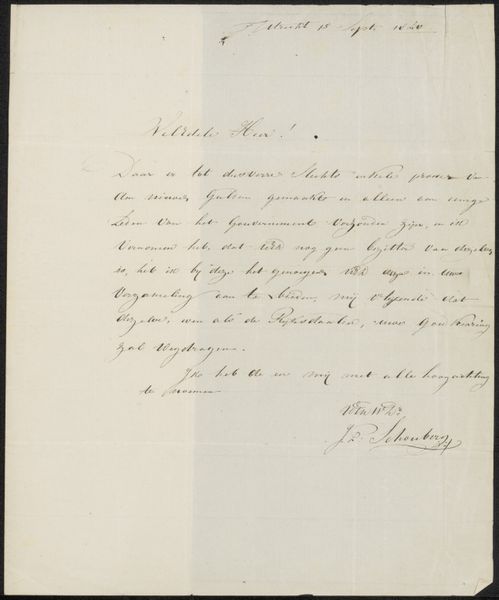 Utrecht 18 Sept. 1820
WelEdele Heer!
Daar er tot dusverre slechts enkele proeven van
den nieuwe Gulden gemaakt en alleen aan eenige
Leden van het Gouvernement verzonden zijn, en ik
Vernomen heb, dat nog geen bezitter van dezelve
is, heb ik bij deze het genoegen deze in uwe
Verzameling aan te bieden, mij vlijende dat
dezelve, even als de Rijksdaalder, uwe Goedkeuring
zal wegdragen.
Ik heb de eer mij met alle hoogachting
te noemen
Schouberg